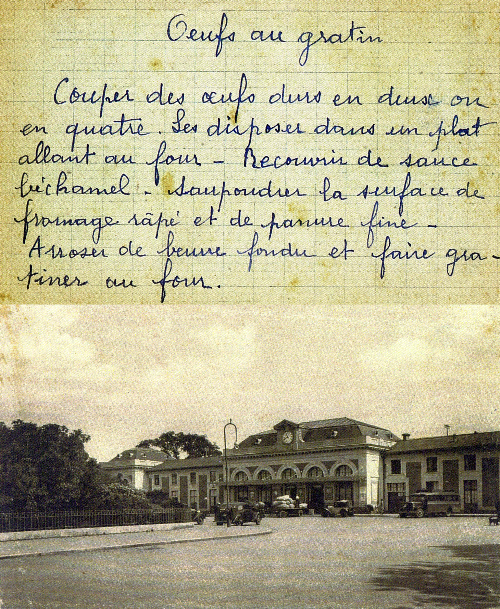 Oeufs au gratin
Couper des œufs durs en deux ou
en quatre. Les disposer dans un plat
allant au four - Recouvrir de sauce
béchamel - Saupoudrer la surface de
fromage râpé et de panure fine -
Arroser de beurre fondu et faire gra-
tiner au four.